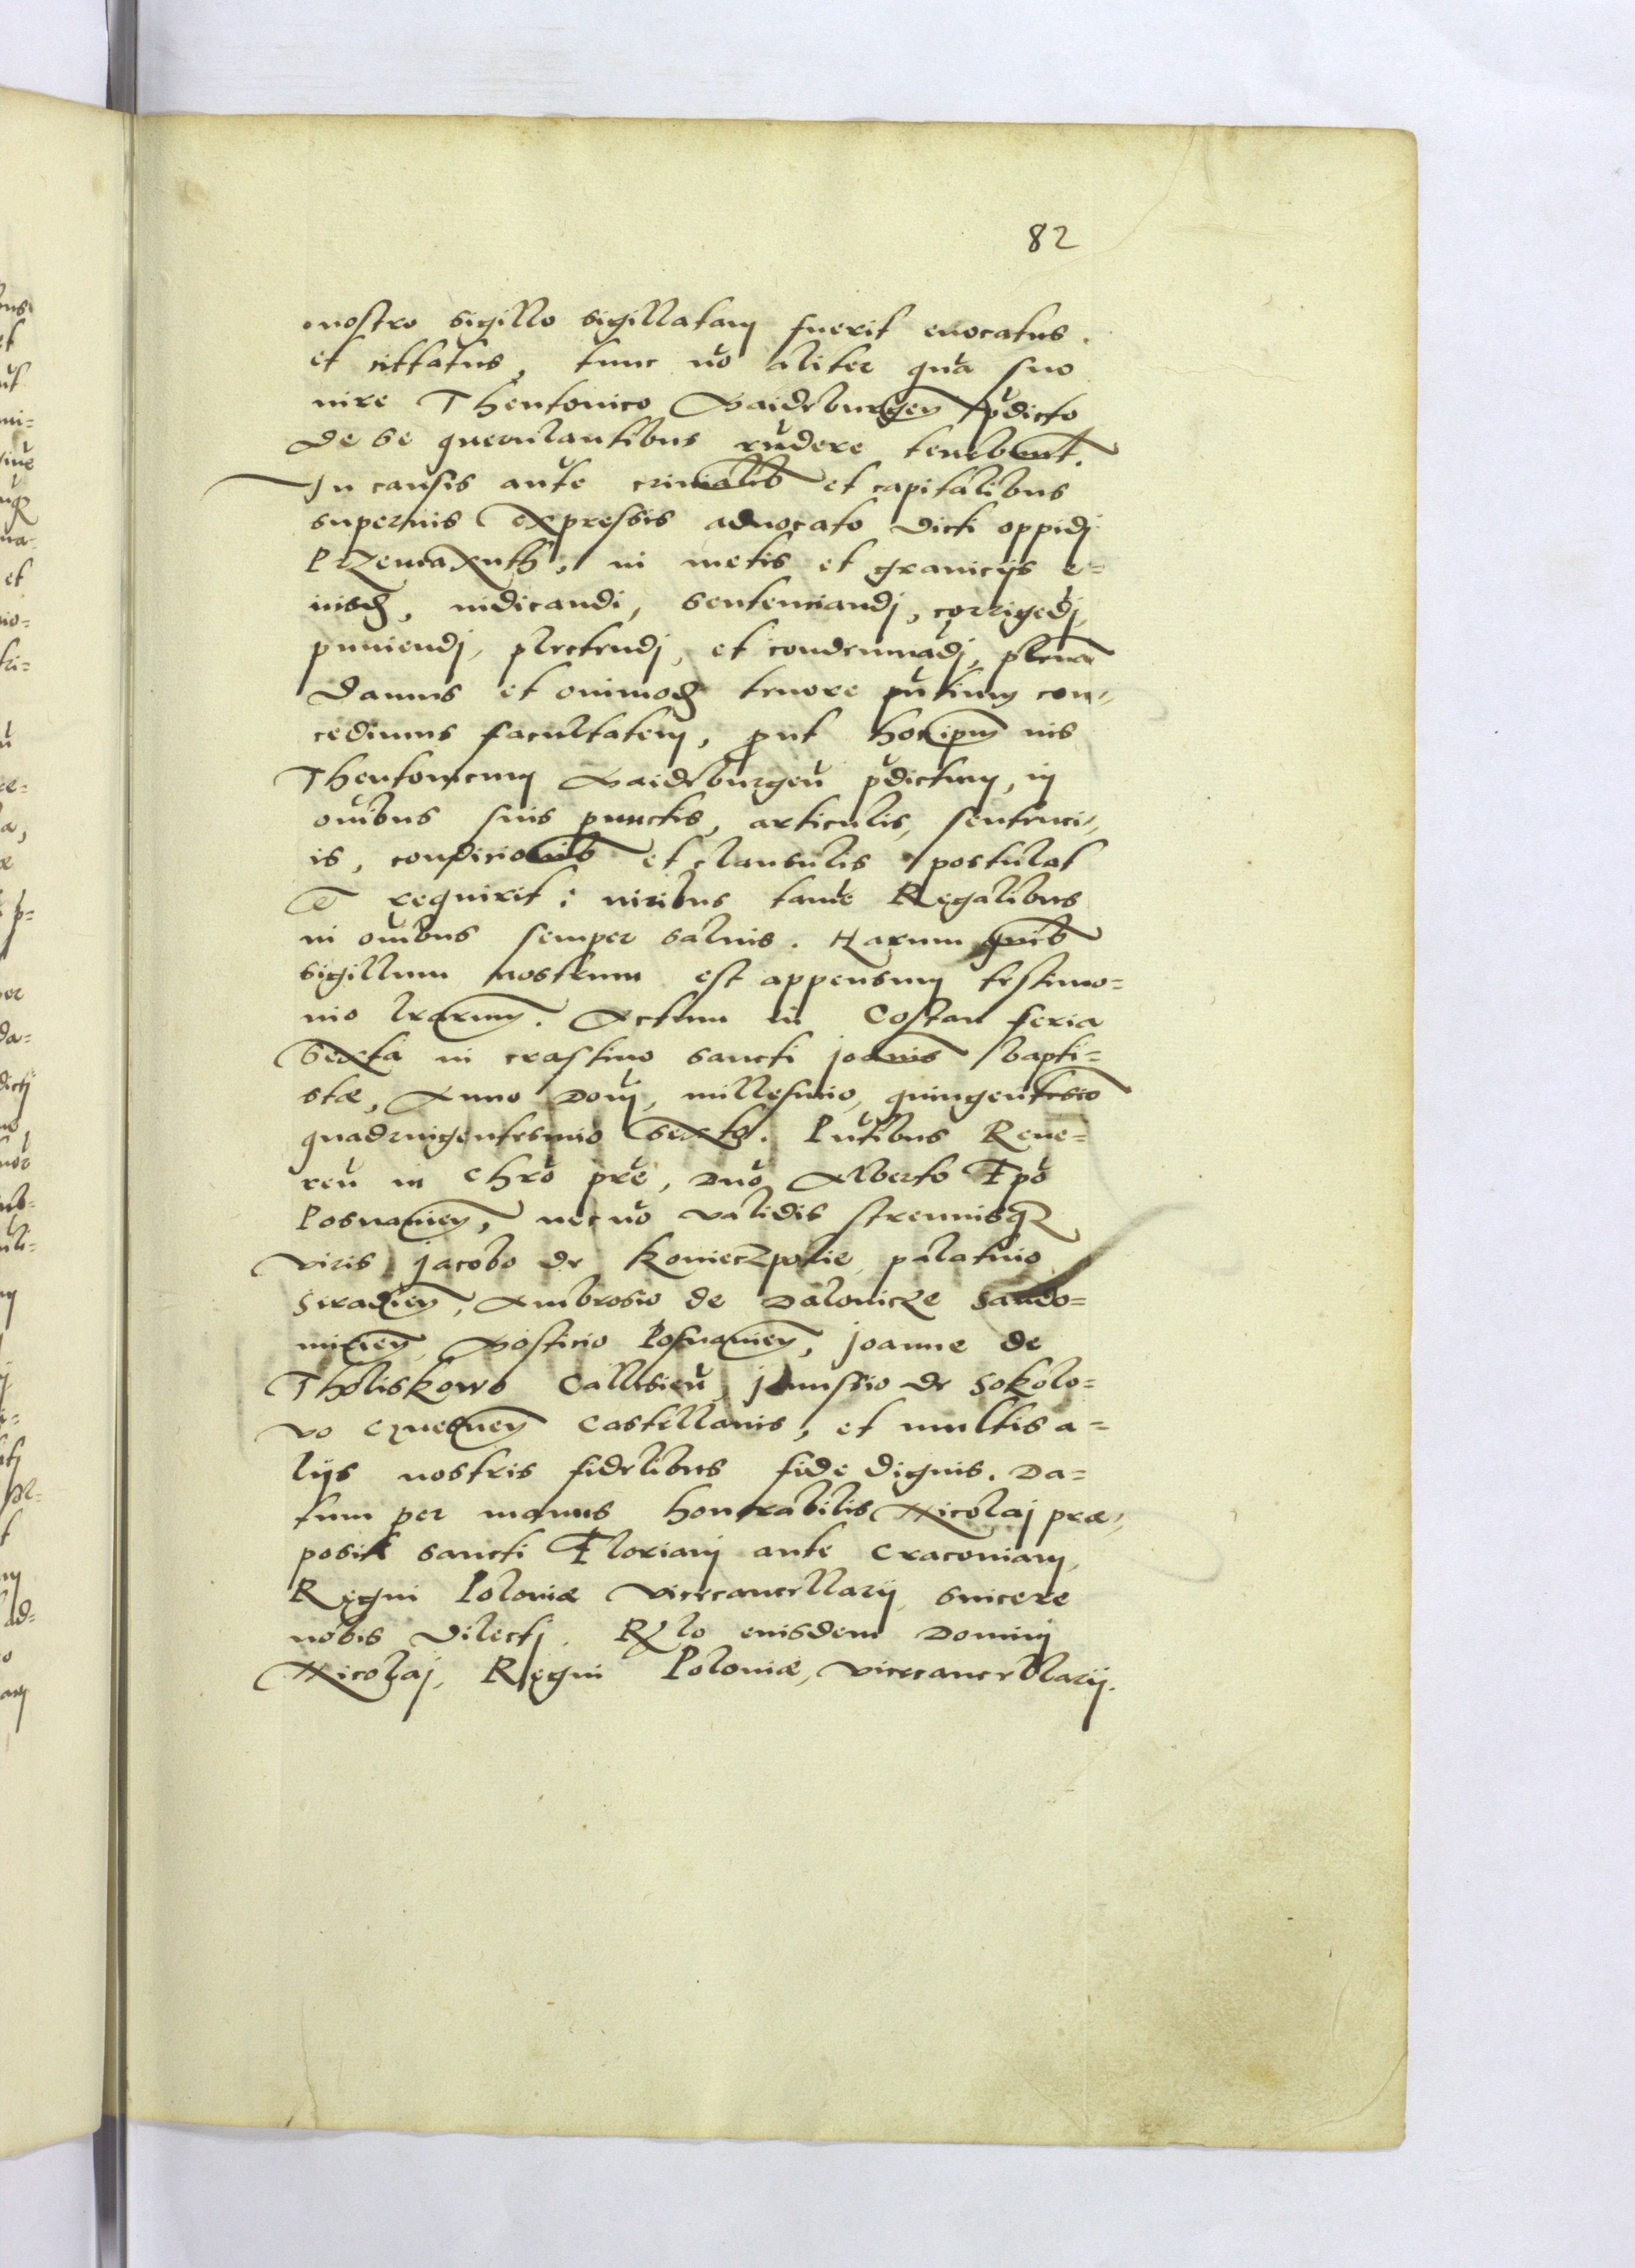 82
nostro sigillo sigillatam fuerit euocatus.
et cittatus, tunc nō aliter quā suo
iure Theutonico Maideburgen̄ p̄dicto
de se querulantibus rn̄dere tenebunt̄.
In causis aut̄e criminalib et capitalibus
superius expressis aduocato dicti oppidj
in metis et granicijs e=
iusd, iudicandi, sentenciandj, corrigēdj,
puniendj, plectendj, et condemnādj, plenā
damus et om̄imod tenore pn̄tium con,,
cedimus facultatem, ꝓut hoc ipm̄ ius
Theutonicum Maideburgen̄ p̄dictum, in
om̄ibus suis punctis, articulis, sentenci,,
is, condicionib et clausulis postulat
et requirit: iuribus tam̄e Regalibus
in om̄ibus semper saluis. Harum quib
sigillum nostrum est appensum testimo=
nio lr̄arum. Actum in Costan feria
sexta in crastino sancti joan̄is bapti=
stæ, Anno Dom̄j, millesimo, quingentesīo
quadruigentesimio sexto. Pn̄tibus Reue=
ren̄ in Chr̄o pr̄e, Dn̄o Alberto Ep̄o
Posnanien̄, nec nō validis strenuisq
viris jacobo de Konieczpolie palatino
Siradien̄, Ambrosio de Dalonicze Sando=
mirien̄, Mosticio Posnanien̄, joanne de
Tholiskowo Callisien̄, janussio de Sokolo=
vo Gnesnen̄ Castellanis, et multis a=
lijs nostris fidelibus fide dignis. Da=
tum per manus honorabilis Nicolaj præ,,
positi sancti Floriani ante Cracouiam,
Regni Poloniæ vicecancellarij sincere
nobis dilectj. Rlo eiusdem Dominj
Nicolaj, Regni Poloniæ, vicecancellarij.